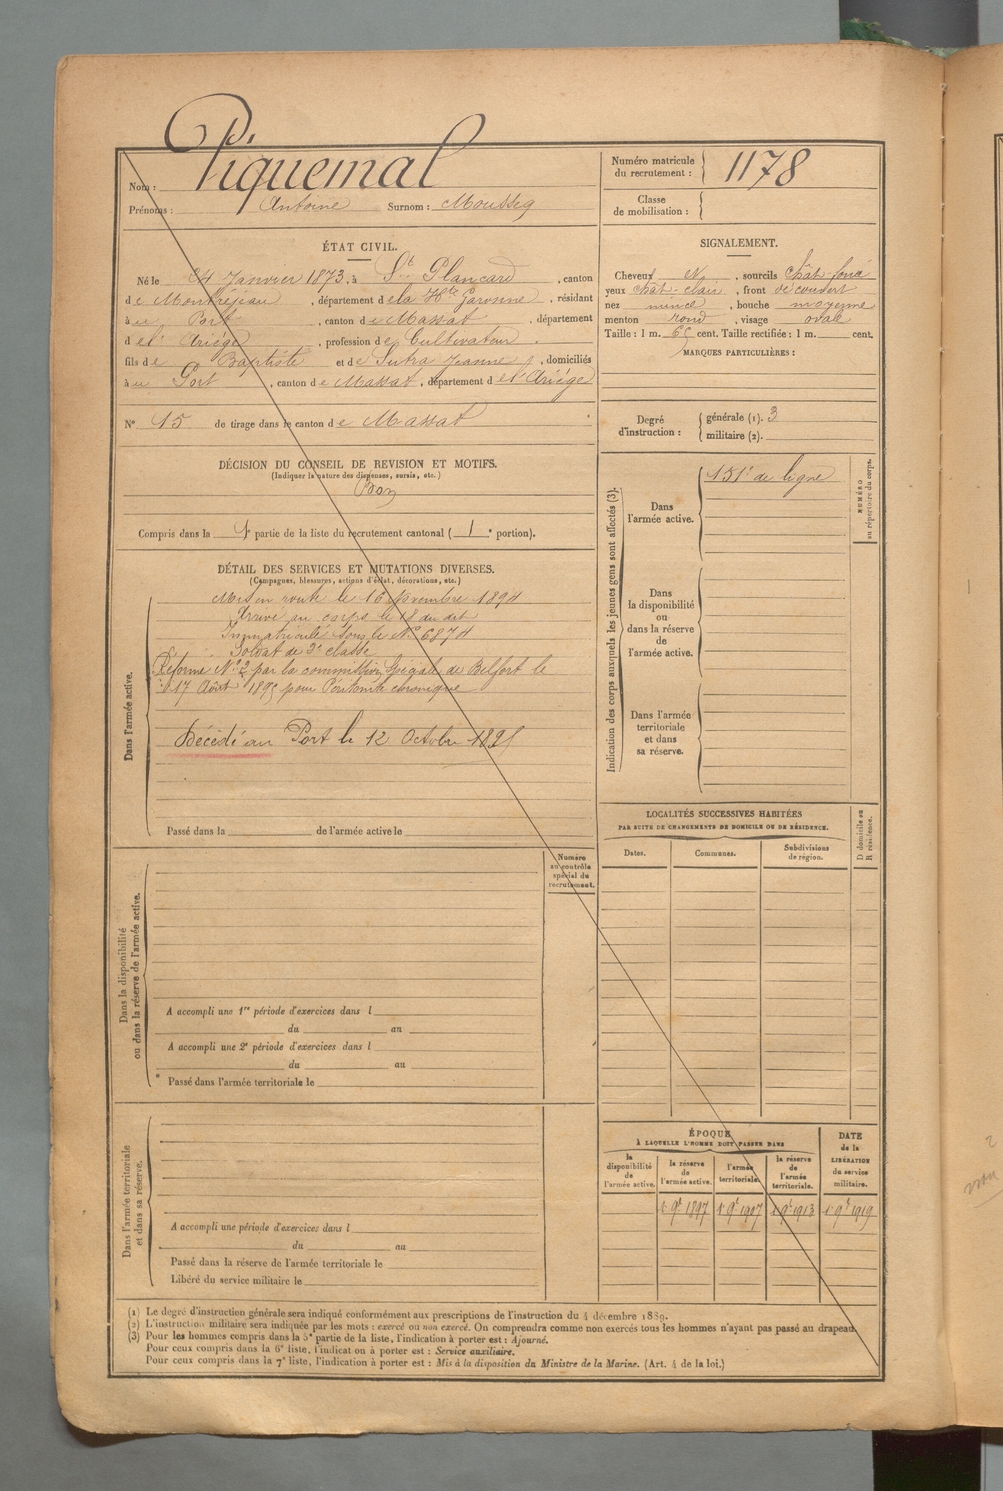 Nom : Piquemal
Prénoms : Antoine Surnom : Mousseg
Numéro matricule du recrutement : 1178
Classe de mobilisation :
ÉTAT CIVIL.
Né le 24 Janvier 1873, à St Plancard, canton
de Montréjeau, département de la Hte Garonne, résidant
à u Port, canton de Massat, département
de l'Ariége, profession de Cultivateur.
fils de Baptiste et de Sutra Jeanne, domiciliés
à u Port, canton de Massat, département de l'Ariége
N° 15 de tirage dans le canton de Massat
SIGNALEMENT.
Cheveux N, sourcils chât-foncé
yeux chât-clair, front découvert
nez mince, bouche moyenne
menton rond, visage ovale
Taille : 1 m. 65 cent. Taille rectifiée : 1 m. cent.
MARQUES PARTICULIÈRES :
Degré d'instruction : générale (1). 3
militaire (2).
DÉCISION DU CONSEIL DE REVISION ET MOTIFS.
(Indiquer la nature des dispenses, sursis, etc.)
Bon
Compris dans la 1e partie de la liste du recrutement cantonal ( 1 e portion).
DÉTAIL DES SERVICES ET MUTATIONS DIVERSES.
(Campagnes, blessures, actions d'éclat, décorations, etc.)
Dans l'armée active.
Mis en route le 16 Novembre 1894
Arrivé au corps le 18 du dit
Immatriculé sous le N° 6874
Soldat de 2e classe
Réformé N° 2 par la commission Spéciale de Belfort le
17 Août 1895 pour Péritonite chronique
Décédé au Port le 12 Octobre 1895
Passé dans la de l'armée active le
Indication des corps auxquels les jeunes gens sont affectés (3).
Dans l'armée active.
151e de ligne
Dans la disponibilité ou dans la réserve de l'armée active.
Dans l'armée territoriale et dans sa réserve.
NUMÉRO au répertoire du corps.
LOCALITÉS SUCCESSIVES HABITÉES
PAR SUITE DE CHANGEMENTS DE DOMICILE OU DE RÉSIDENCE.
Dates. Communes. Subdivisions de région.
D domicile ou R résidence.
Numéro au contrôle spécial du recrutement.
Dans la disponibilité ou dans la réserve de l'armée active.
A accompli une 1re période d'exercices dans l
du au
A accompli une 2e période d'exercices dans l
du au
Passé dans l'armée territoriale le
Dans l'armée territoriale et dans sa réserve.
A accompli une période d'exercices dans l
du au
Passé dans la réserve de l'armée territoriale le
Libéré du service militaire le
ÉPOQUE
À LAQUELLE L'HOMME DOIT PASSER DANS
la disponibilité de l'armée active.
la réserve de l'armée active.
l'armée territoriale.
la réserve de l'armée territoriale.
DATE de la LIBÉRATION du service militaire.
1er 9e 1897 1er 9e 1907 1er 9e 1913 1er 9e 1919
(1) Le degré d'instruction générale sera indiqué conformément aux prescriptions de l'instruction du 4 décembre 1889.
(2) L'instruction militaire sera indiquée par les mots : exercé ou non exercé. On comprendra comme non exercés tous les hommes n'ayant pas passé au drapeau.
(3) Pour les hommes compris dans la 5e partie de la liste, l'indication à porter est : Ajourné.
Pour ceux compris dans la 6e liste, l'indication à porter est : Service auxiliaire.
Pour ceux compris dans la 7e liste, l'indication à porter est : Mis à la disposition du Ministre de la Marine. (Art. 4 de la loi.)